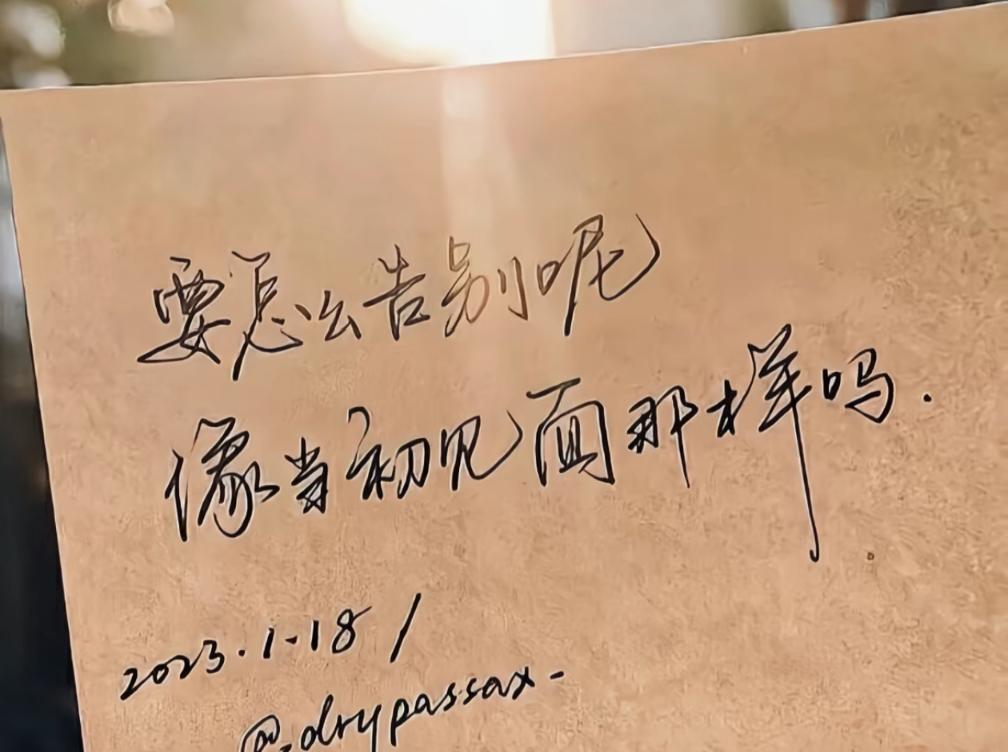 要怎么告别呢
像当初见面那样吗.
2023.1.18/
@drypassax-